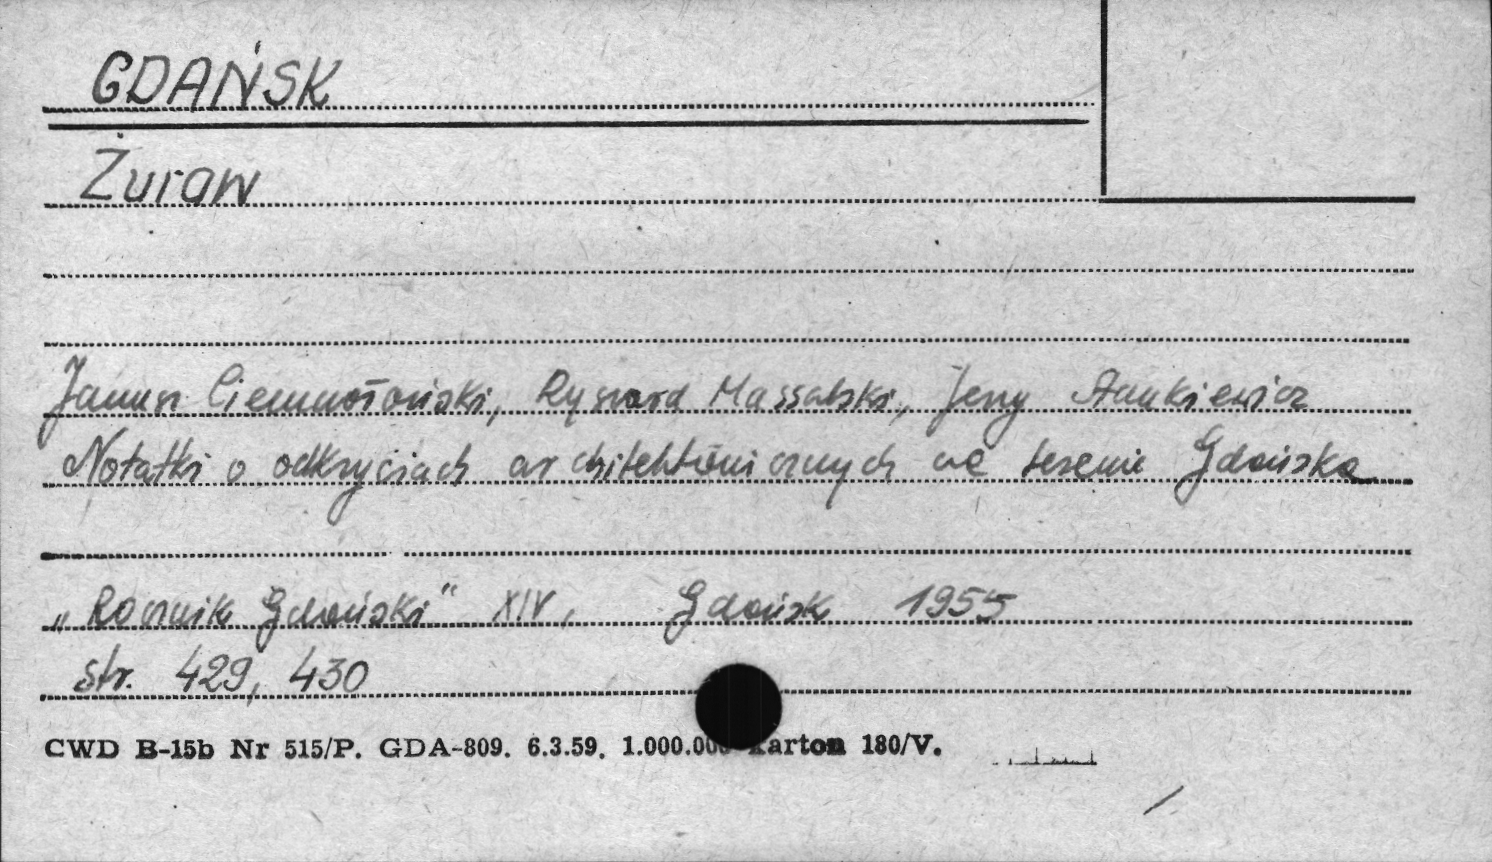 GDAŃSK
Żuraw
Janusz Ciemnołoński, Ryszard Massalski, Jerzy Stankiewicz
Notatki o odkryciach architektonicznych na terenie Gdańska
„Rocznik Gdański" XIV, Gdańsk 1955
str. 429, 430
CWD B-15b Nr 515/P. GDA-809. 6.3.59. 1.000.000 karton 180/V.